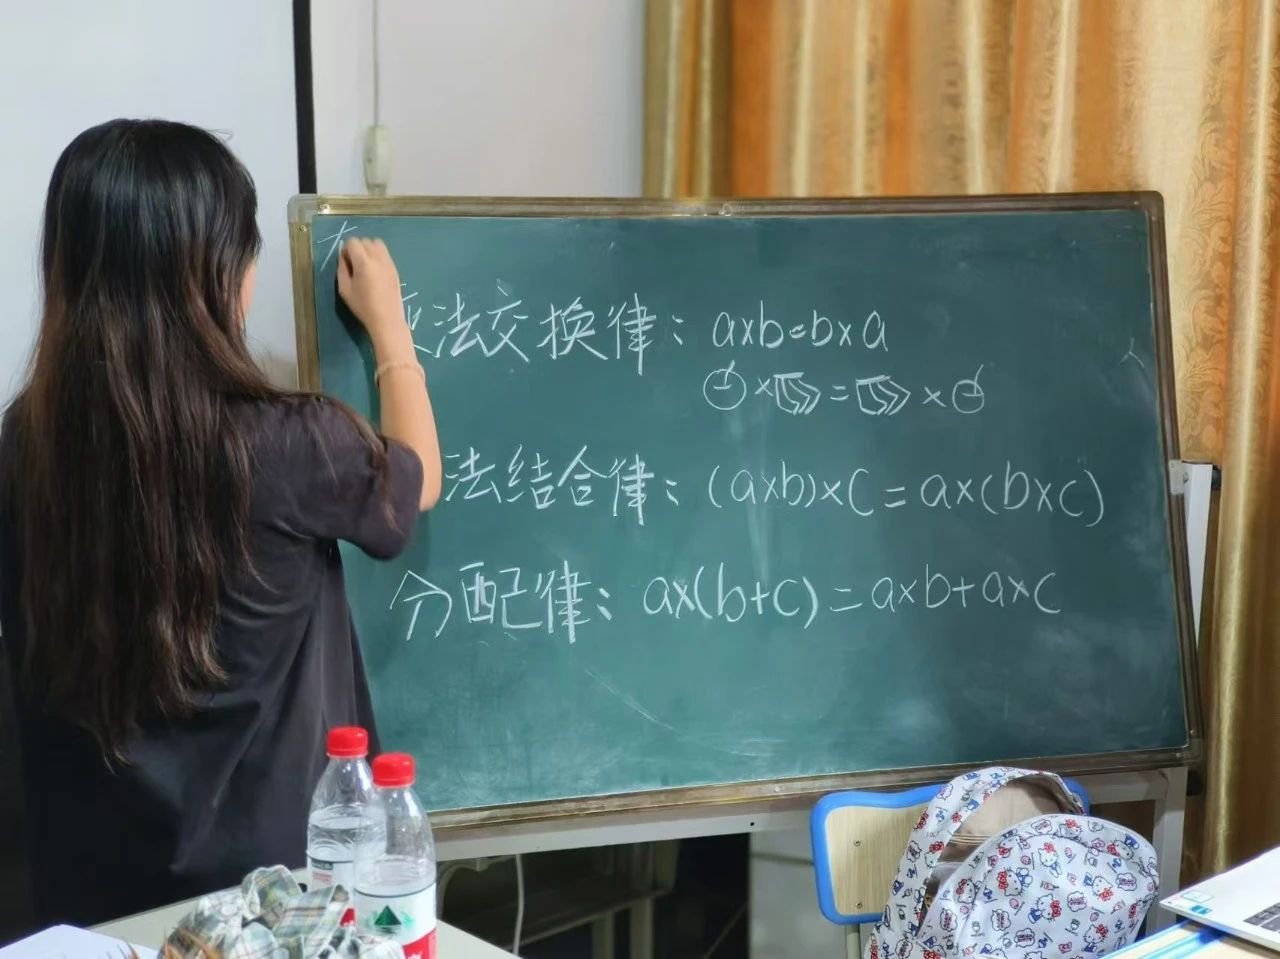 法交换律：a×b=b×a
× = ×
法结合律：(a×b)×c=a×(b×c)
分配律：a×(b+c)=a×b+a×c